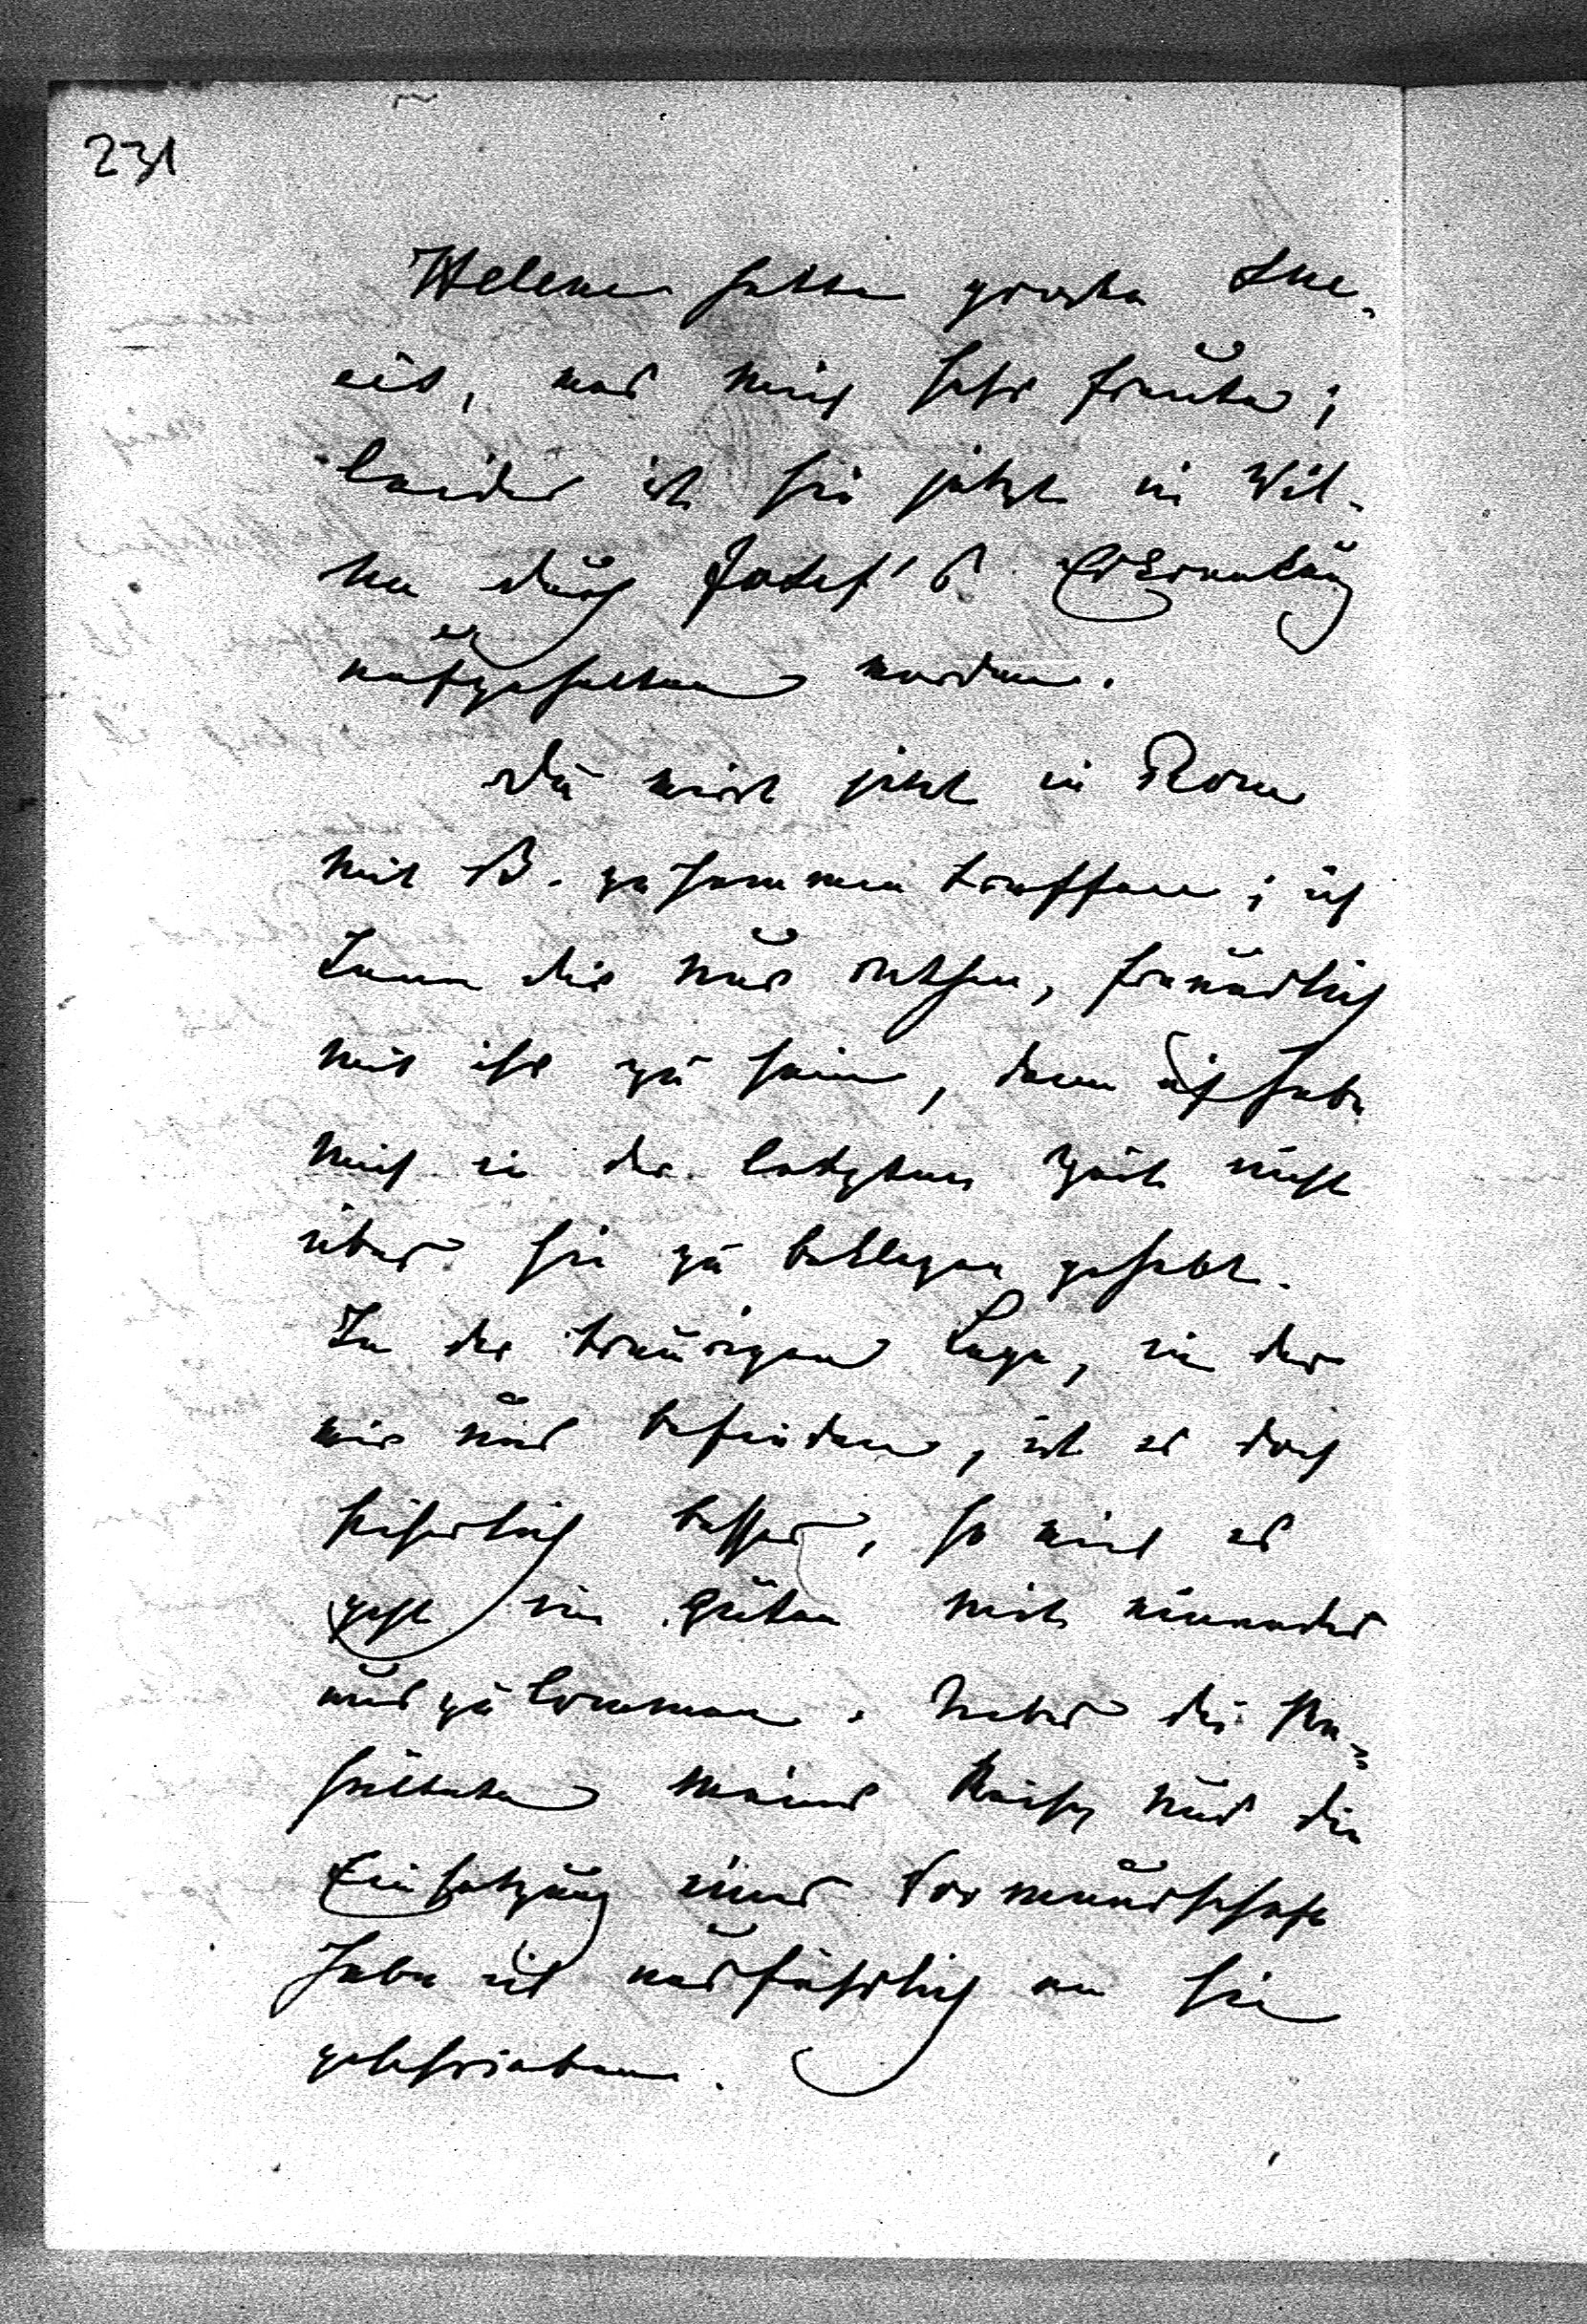 231
Helene hatte grosse Eme-
ris, was mich sehr freute;
leider ist sie jetzt in Wil-
na durch Josef's Erkrankung
aufgehalten worden.
Du wirst jetzt in Rom
mit B. zusammentreffen; ich
kann dir nur rathen, freundlich
mit ihr zu sein, denn ich habe
mich in der letzten Zeit nicht
über sie zu beklagen gehabt.
In der traurigen Lage, in der
wir uns befinden, ist es doch
sicherlich besser, so weit es
geht im Guten mit einander
auszukommen. Ueber die Re-
sultate meiner Reise und die
Einsetzung einer Vormundschaft
habe ich ausführlich an sie
geschrieben.